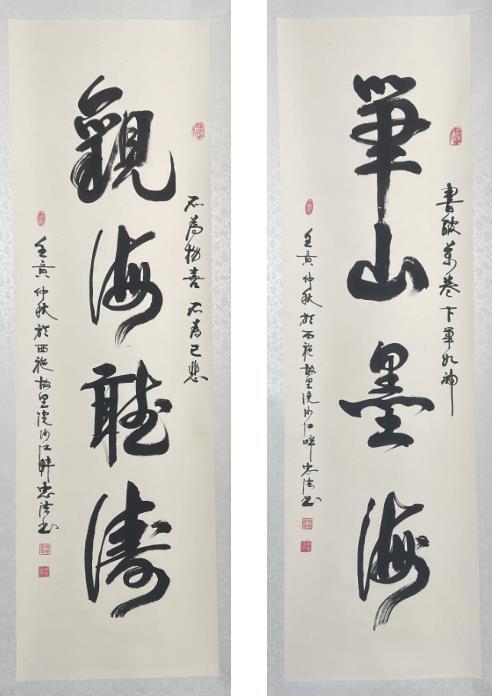 書破萬卷下筆如神
筆山墨海
壬寅仲秋於西施故里浣沙江畔忠法书
不為物喜 不為己悲
觀海聽濤
壬寅仲秋於西施故里浣沙江畔忠法书